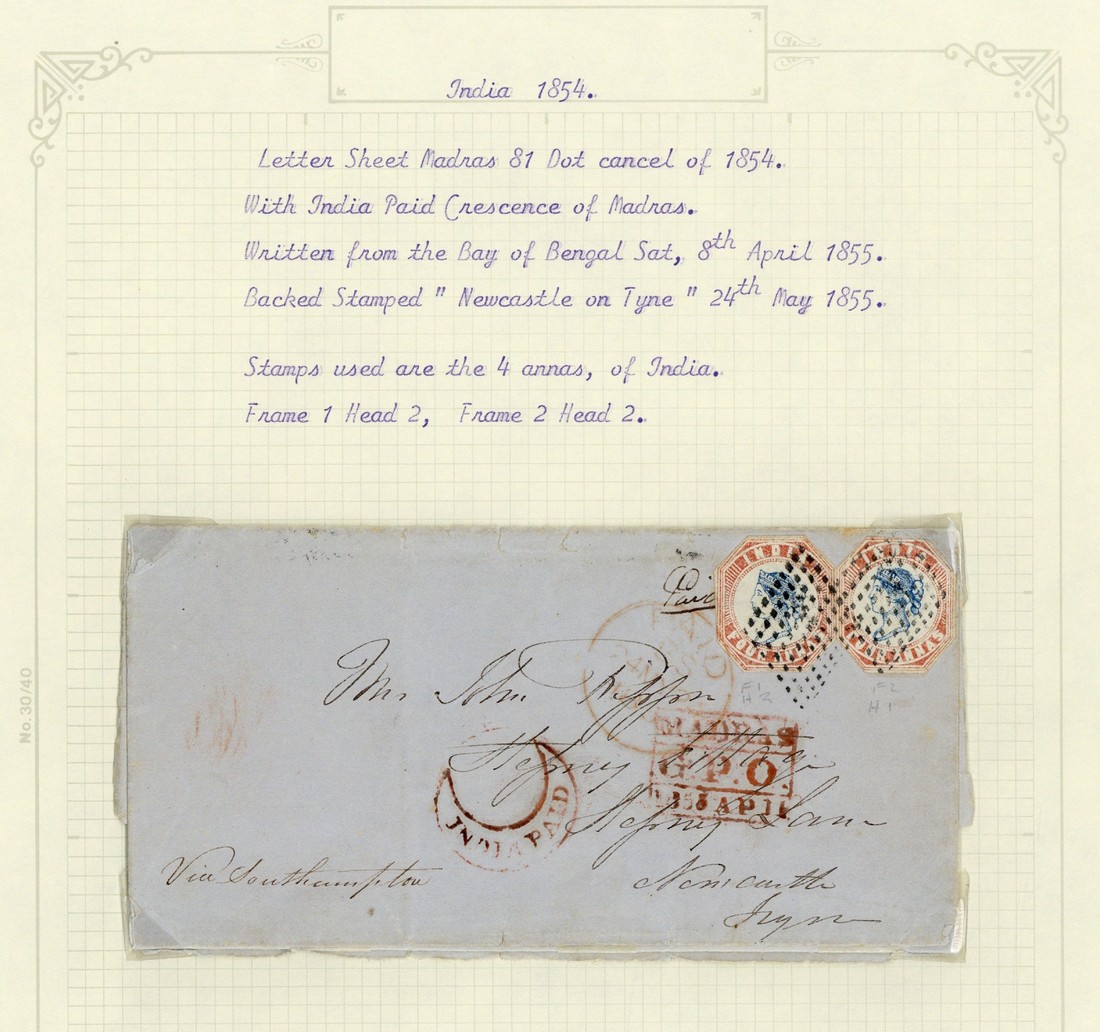 India 1854.
Letter Sheet Madras 81 Dot cancel of 1854.
With India Paid Crescence of Madras.
Written from the Bay of Bengal Sat, 8th April 1855.
Backed Stamped " Newcastle on Tyne " 24th May 1855.
Stamps used are the 4 annas, of India.
Frame 1 Head 2, Frame 2 Head 2.
No.30/40
INDIA
FOUR ANNAS
Paid
PAID
F1
H2
F2
H1
Mr John Rippon
Stepney Cottage
Stepney Lane
Newcastle
Tyne
MADRAS
G.P.O.
INDIA PAID
Via Southampton